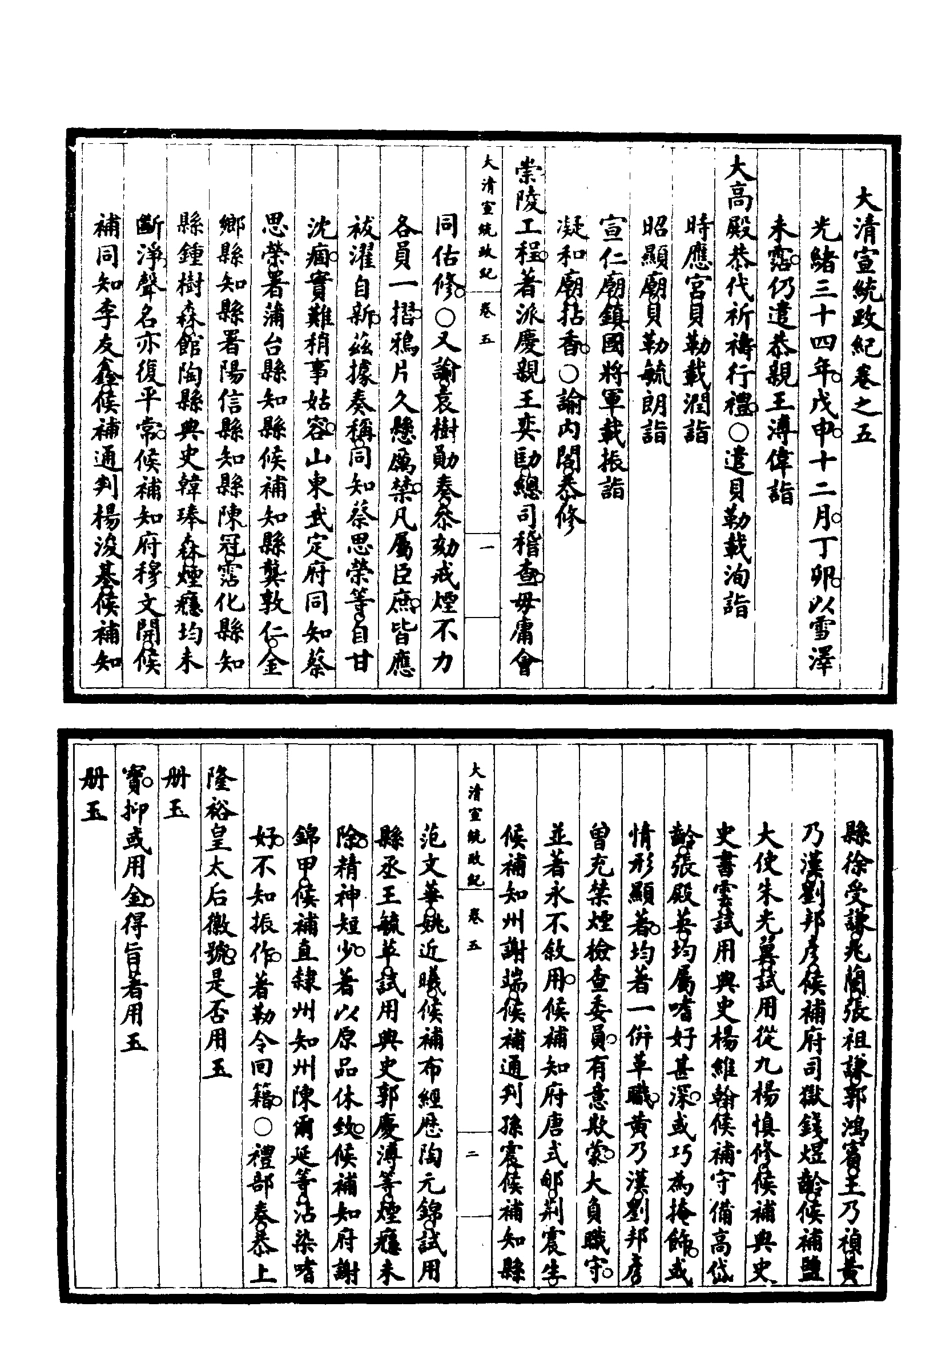 大清宣統政紀卷之五
光緒三十四年。戊申。十二月。丁卯。以雪澤
未霑。仍遣恭親王溥偉詣
大高殿恭代祈禱行禮。○遣貝勒載洵詣
時應宮。貝勒載潤詣
昭顯廟。貝勒毓朗詣
宣仁廟。鎮國將軍載振詣
凝和廟。拈香。○諭內閣。恭修
崇陵工程。著派慶親王奕劻。總司稽查。毋庸會
大清宣統政紀 卷五 一
同估修。○又諭。袁樹勛奏。參劾戒煙不力
各員一摺。鴉片久懸厲禁。凡屬臣庶。皆應
祓濯自新。茲據奏稱。同知蔡思榮等。自甘
沈痼。實難稍事姑容。山東武定府同知蔡
思榮。署蒲台縣知縣候補知縣龔敦仁。金
鄉縣知縣署陽信縣知縣陳冠。霑化縣知
縣鍾樹森。館陶縣典史韓琫森。煙癮均未
斷淨。聲名亦復平常。候補知府穆文開。候
補同知李友鑫。候補通判楊浚基。候補知
縣徐受謙。兆蘭。張祖謙。郭鴻賓。王乃禎。黃
乃漢。劉邦彥。候補府司獄錢煜齡。候補鹽
大使朱光冀。試用從九楊慎修。候補典史
史書雲。試用典史楊維翰。候補守備高岱
齡。張殿英。均屬嗜好甚深。或巧為掩飾。或
情形顯著。均著一併革職。黃乃漢。劉邦彥
曾充禁煙檢查委員。有意欺蒙。大負職守。
並著永不敘用。候補知府唐式郇。荊震生。
候補知州謝端。候補通判孫震。候補知縣
大清宣統政紀 卷五 二
范文華。姚近曦。候補布經歷陶元錦。試用
縣丞王毓草。試用典史郭慶溥等。煙癮未
除。精神短少。著以原品休致。候補知府謝
錦甲。候補直隸州知州陳爾延等。沾染嗜
好。不知振作。著勒令回籍。○禮部奏。恭上
隆裕皇太后徽號。是否用玉
冊玉
寶。抑或用金。得旨。著用玉
冊玉